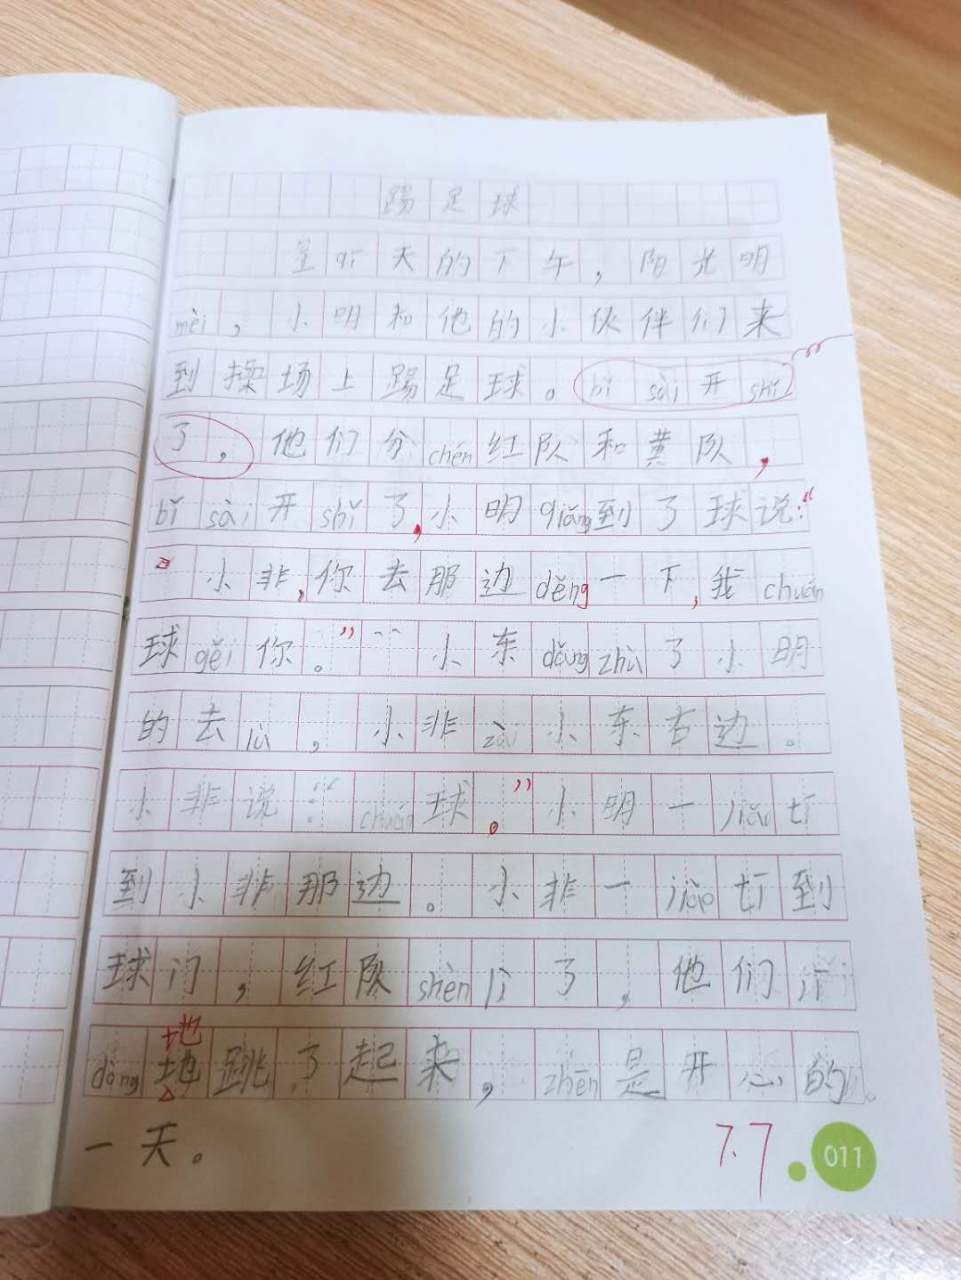 踢足球
星qī天的下午，阳光明
mèi，小明和他的小伙伴们来
到操场上踢足球。bǐ sài开shǐ
了，他们分chén红队和黄队，
bǐ sài开shǐ了，小明qiǎng到了球说：“
小非，你去那边děng一下，我chuán
球gěi你。”小东dǎng zhù了小明
的去lù，小非zài小东右边。
小非说：“chuán球。”小明一jiǎo tī
到小非那边。小非一jiǎo tī到
球门，红队shèn lì了，他们jī
地
dòng地跳了起来，zhēn是开心的。
一天。
7.7
011